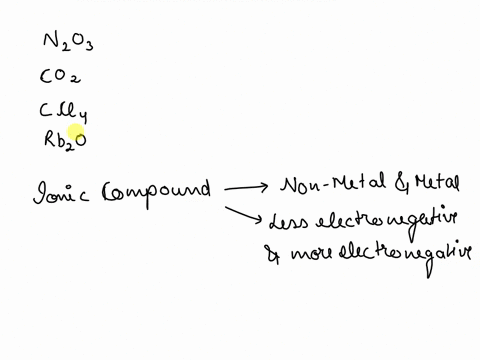 N₂O₃
CO₂
CCl₄
Rb₂O
Ionic Compound → Non-Metal & Metal
→ Less electronegative
& more electronegative